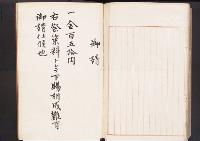 御請
一金百五拾円
右営業料トシテ下賜相成難有
御請仕候也